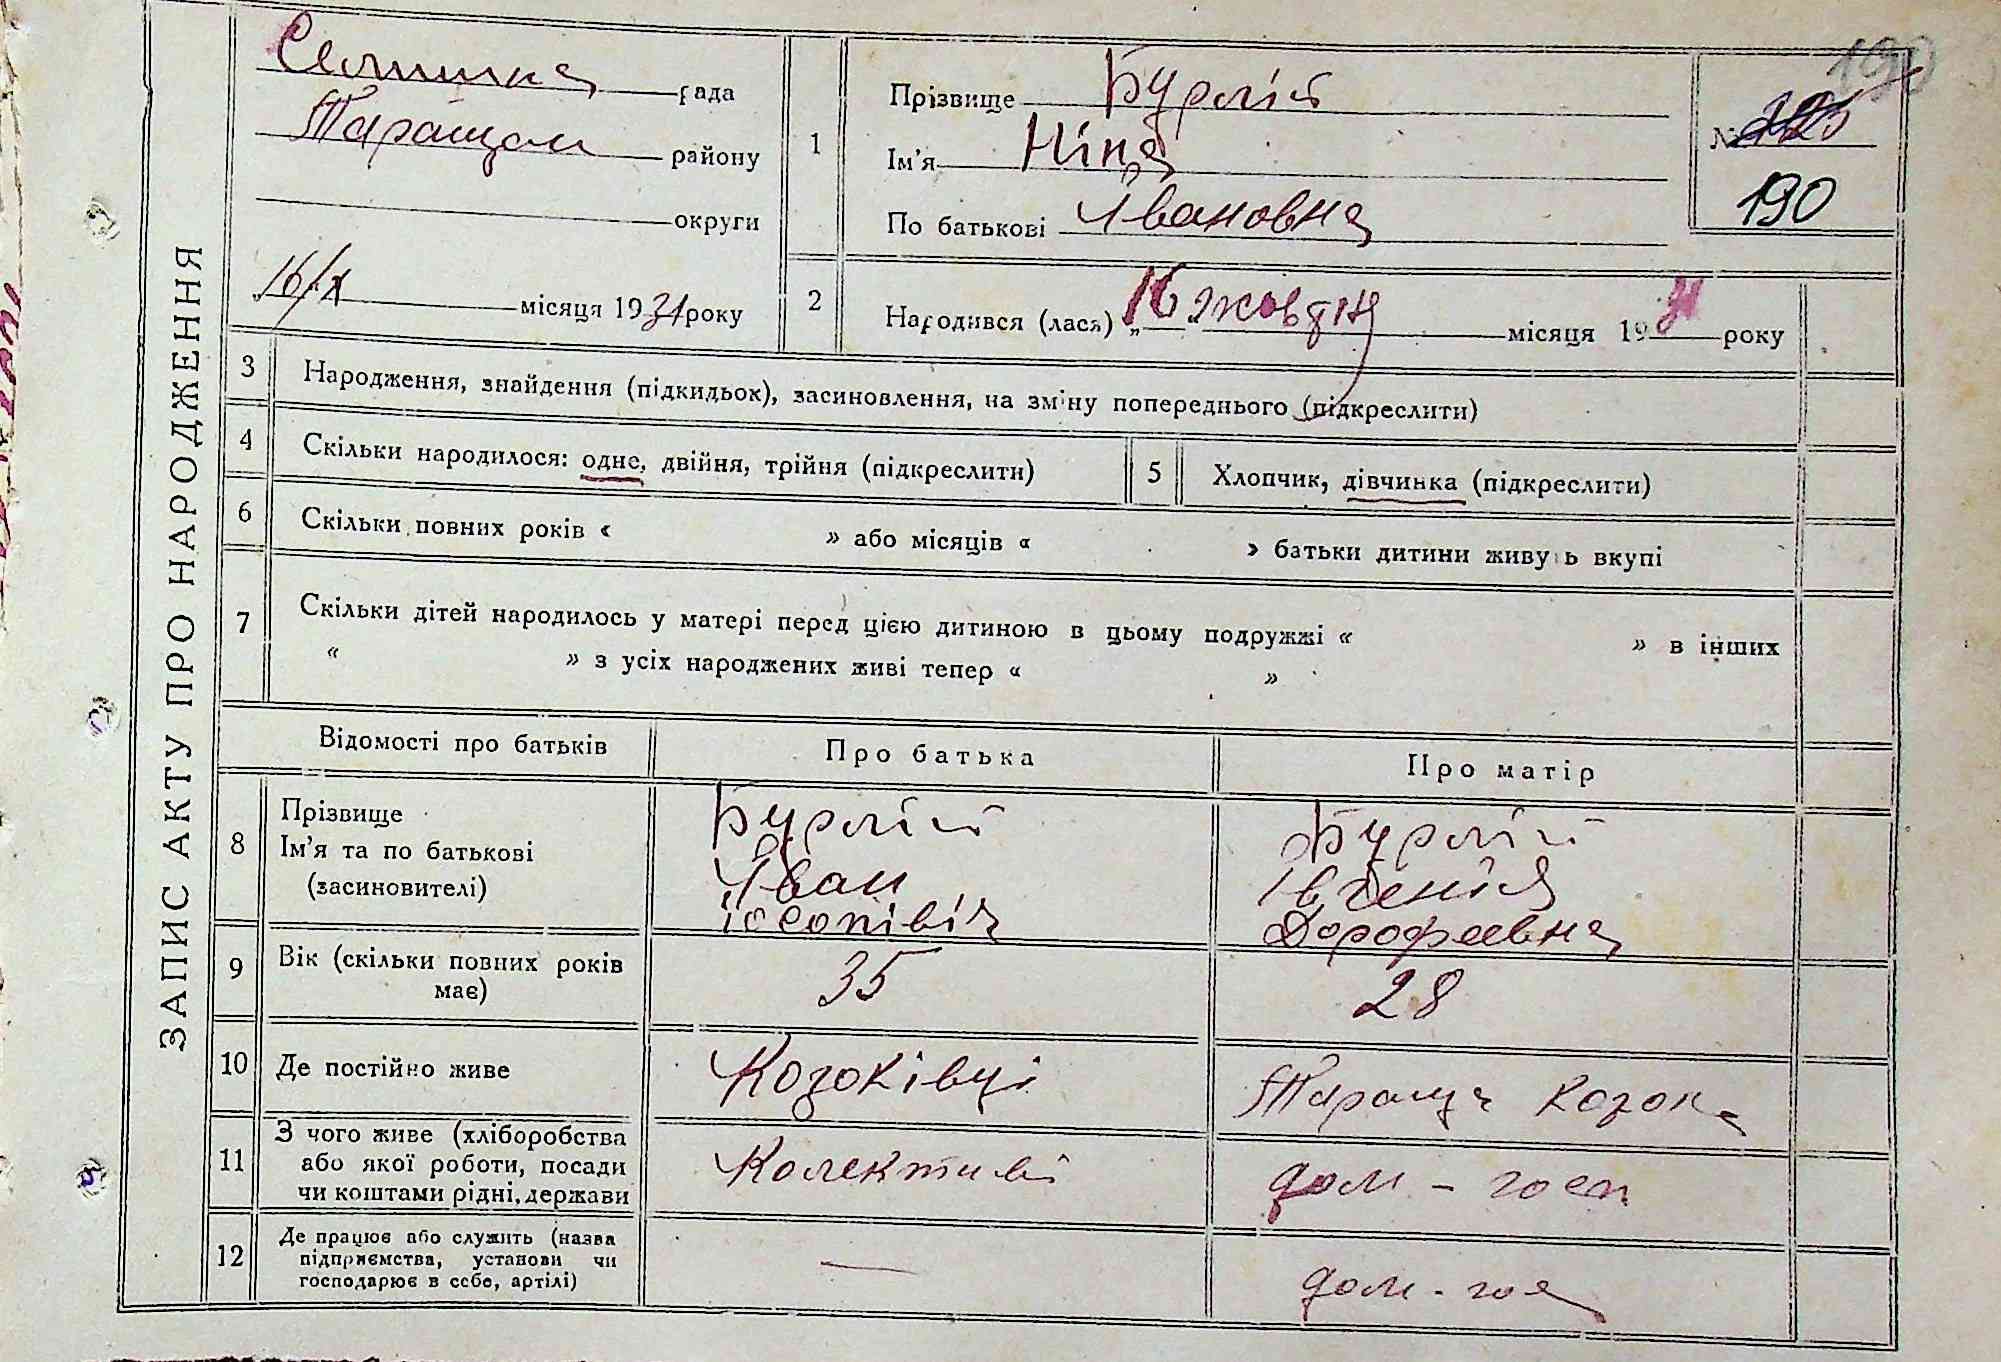 ЗАПИС АКТУ ПРО НАРОДЖЕННЯ
рада
району
округи
16/X місяця 1931 року
190
1
Прізвище Бурлій
Ім'я Ніна
По батькові Івановна
№
190
2
Народився (лася) „16 жовтня місяця 1931 року
3
Народження, знайдення (підкидьок), засиновлення, на зміну попереднього (підкреслити)
4
Скільки народилося: одне, двійня, трійня (підкреслити)
5
Хлопчик, дівчинка (підкреслити)
6
Скільки повних років « » або місяців « » батьки дитини живуть вкупі
7
Скільки дітей народилось у матері перед цією дитиною в цьому подружжі « » в інших
« » з усіх народжених живі тепер « »
Відомості про батьків
Про батька
Про матір
8
Прізвище
Ім'я та по батькові
(засиновителі)
Бурлій
Іван
Іосопівіч
Бурлій
Івгенія
Дорофеевна
9
Вік (скільки повних років
має)
35
28
10
Де постійно живе
Козоківці
Тараща Козок
11
З чого живе (хліборобства
або якої роботи, посади
чи коштами рідні, держави
Колектив
дом - госп
12
Де працює або служить (назва
підприємства, установи чи
господарює в себе, артілі)
—
дом-гоя